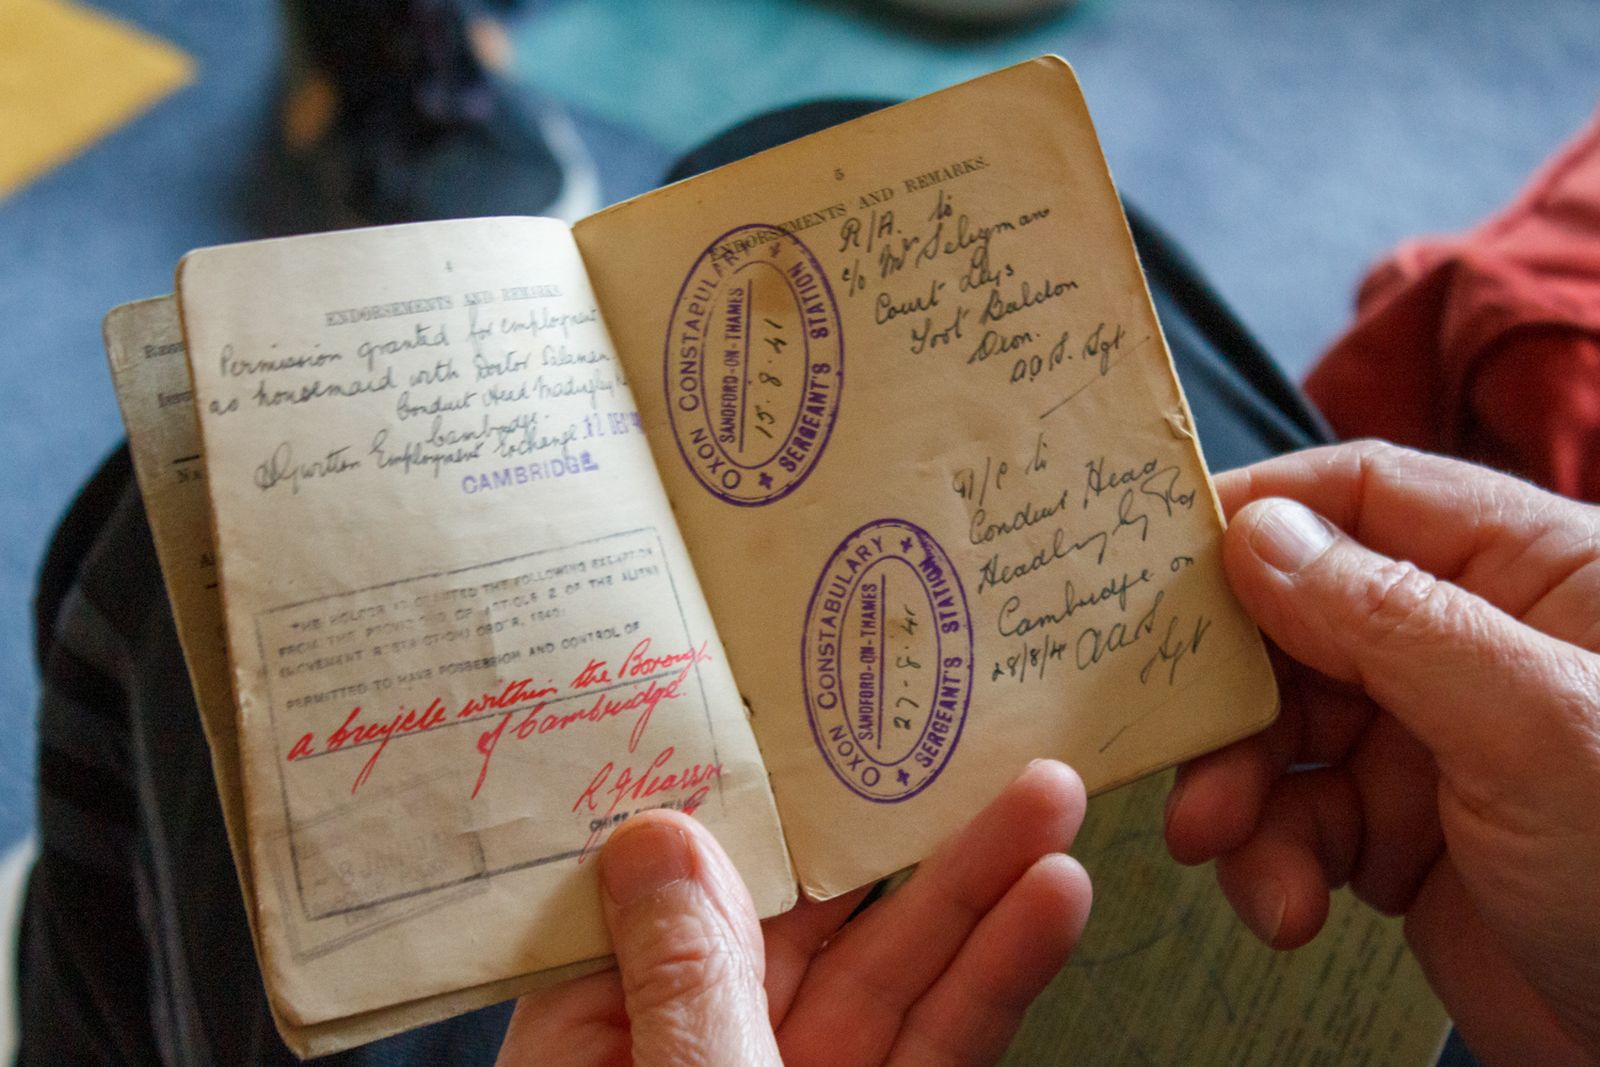 4
ENDORSEMENTS AND REMARKS
Permission granted for employment
as housemaid with Doctor
Conduit Head Madingley
Cambridge.
Employment Exchange 12 DEC
CAMBRIDGE
THE HOLDER IS GRANTED THE FOLLOWING EXEMPTION
FROM THE PROVISIONS OF ARTICLE 2 OF THE ALIENS
(MOVEMENT RESTRICTION) ORDER, 1940:
PERMITTED TO HAVE POSSESSION AND CONTROL OF
a bicycle within the Borough
of Cambridge.
R J Pearson
CHIEF
8 JAN
5
ENDORSEMENTS AND REMARKS.
OXON CONSTABULARY
SERGEANT'S STATION
SANDFORD-ON-THAMES
15·8·41
R/A. to
c/o Mr Seligman
Court Leys
Toot Baldon
Oxon.
Sgt
OXON CONSTABULARY
SERGEANT'S STATION
SANDFORD-ON-THAMES
27·8·41
to
Conduit Head
Rd
Cambridge on
28/8/41
Sgt